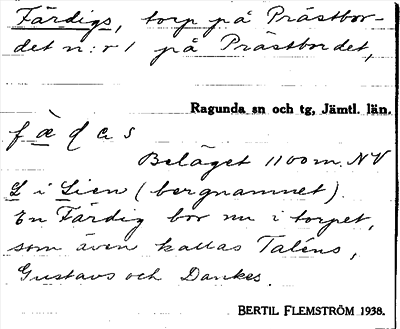 Färdigs, torp på Prästbor-
det n:r 1 på Prästbordet,
Ragunda sn och tg, Jämtl. län.
Beläget 1100 m. NV
L i Lien (bergnamnet).
En Färdig bor nu i torpet,
som även kallas Taléns,
Gustavs och Dankes.
BERTIL FLEMSTRÖM 1938.